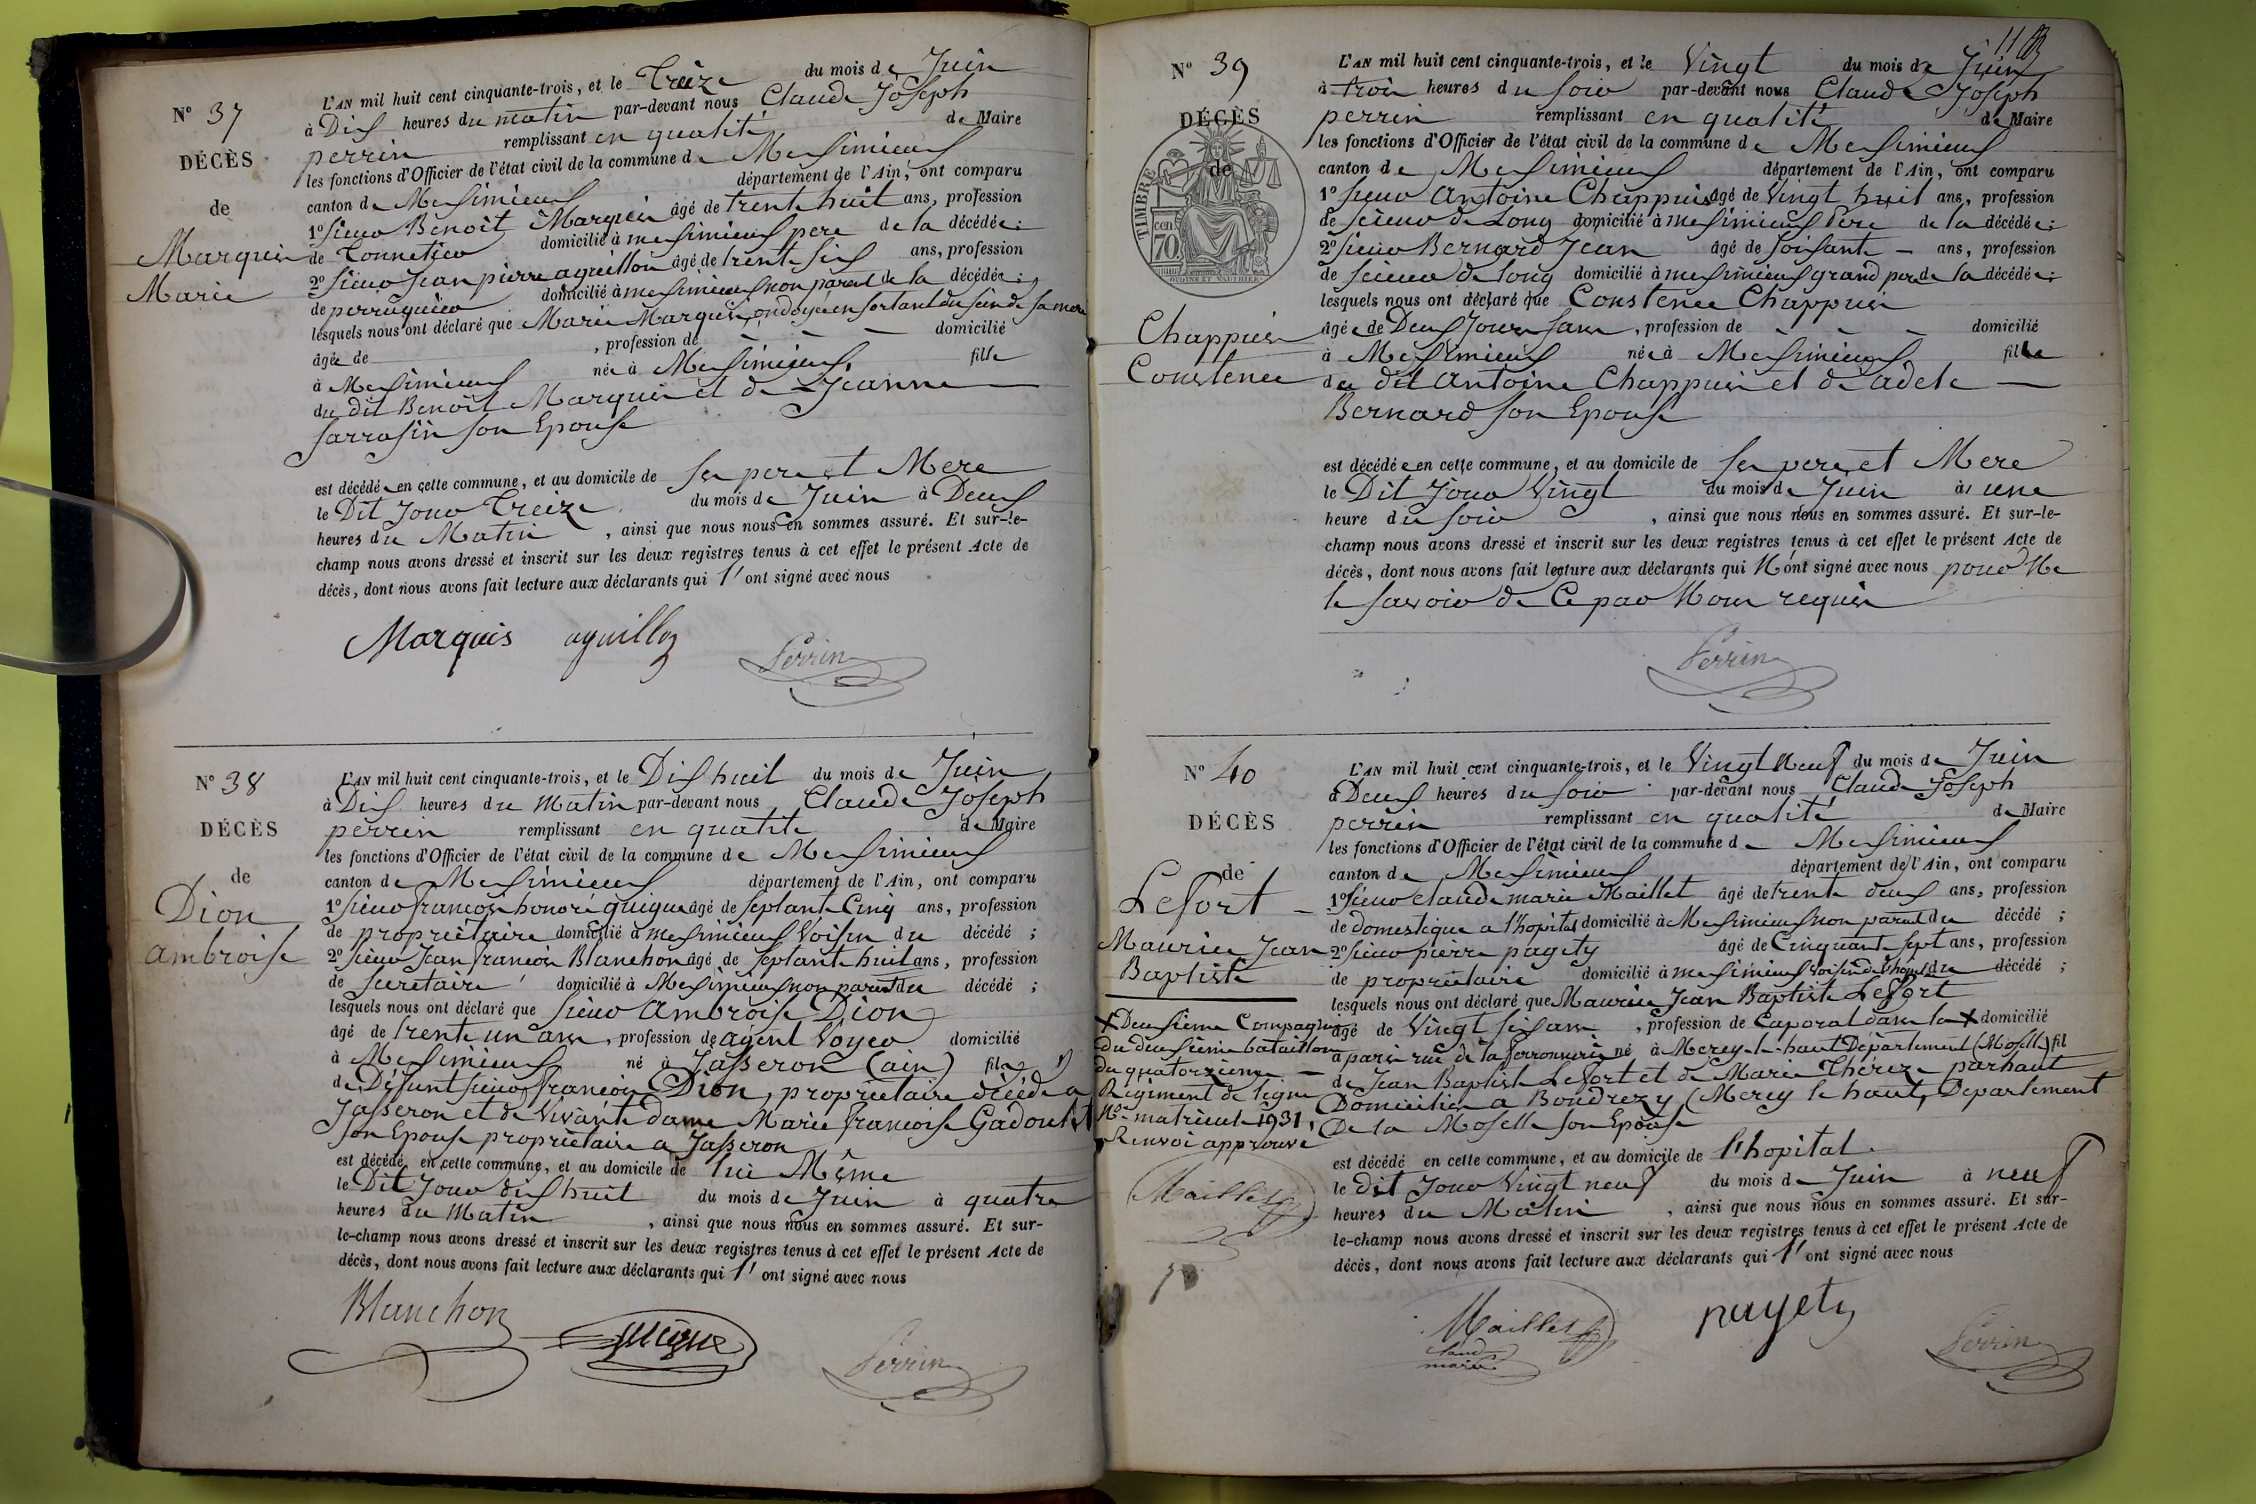 N° 37
DÉCÈS
de
Marquis
Marie
L'AN mil huit cent cinquante-trois, et le Treize du mois de Juin
à Dix heures du matin par-devant nous Claude Joseph
perrin remplissant en qualité de Maire
les fonctions d'Officier de l'état civil de la commune de Meximieux
canton de Meximieux département de l'Ain, ont comparu
1° Sieur Benoît Marquis âgé de trente huit ans, profession
de Tonnelier domicilié à meximieux pere de la décédée ;
2° Sieur Jean pierre aguillon âgé de trente six ans, profession
de perruquier domicilié à meximieux non parent de la décédée ;
lesquels nous ont déclaré que Marie Marquis, ondoyé en sortant du sein de sa mere
âgée de , profession de domicilié
à Meximieux née à Meximieux fille
du dit Benoît Marquis et de Jeanne
Sarrasin son Epouse
est décédée en cette commune, et au domicile de ses pere et Mere
le Dit Jour Treize du mois de Juin à Deux
heures du Matin , ainsi que nous nous en sommes assuré. Et sur-le-
champ nous avons dressé et inscrit sur les deux registres tenus à cet effet le présent Acte de
décès, dont nous avons fait lecture aux déclarants qui l' ont signé avec nous
Marquis aguillon Perrin
N° 38
DÉCÈS
de
Dion
ambroise
L'AN mil huit cent cinquante-trois, et le Dix huit du mois de Juin
à Dix heures du Matin par-devant nous Claude Joseph
perrin remplissant en qualité de Maire
les fonctions d'Officier de l'état civil de la commune de Meximieux
canton de Meximieux département de l'Ain, ont comparu
1° Sieur françois honoré guigue âgé de septante Cinq ans, profession
de propriétaire domicilié à meximieux Voisin du décédé ;
2° Sieur Jean françois Blanchon âgé de septante huit ans, profession
de secretaire domicilié à Meximieux non parent du décédé ;
lesquels nous ont déclaré que Sieur Ambroise Dion
âgé de trente un ans , profession de agent Voyer domicilié
à Meximieux né à Jasseron (ain) fils
de Défunt sieur françois Dion, propriétaire décédé a
Jasseron et de Vivante Dame Marie françoise Gadoulet
son Epouse propriétaire a Jasseron
est décédé en cette commune, et au domicile de lui Même
le Dit Jour dix huit du mois de Juin à quatre
heures du Matin , ainsi que nous nous en sommes assuré. Et sur-
le-champ nous avons dressé et inscrit sur les deux registres tenus à cet effet le présent Acte de
décès, dont nous avons fait lecture aux déclarants qui l' ont signé avec nous
Blanchon guigue Perrin
N° 39
DÉCÈS
de
TIMBRE
cen
70
Chappuis
Constence
L'AN mil huit cent cinquante-trois, et le Vingt du mois de Juin
à trois heures du soir par-devant nous Claude Joseph
perrin remplissant en qualité de Maire
les fonctions d'Officier de l'état civil de la commune de Meximieux
canton de Meximieux département de l'Ain, ont comparu
1° Sieur Antoine Chappuis âgé de Vingt huit ans, profession
de scieur de Long domicilié à meximieux Pere de la décédée ;
2° Sieur Bernard Jean âgé de soixante ans, profession
de scieur de long domicilié à meximieux grand pere de la décédée ;
lesquels nous ont déclaré que Constence Chappuis
âgée de Deux Jours sans , profession de domicilié
à Meximieux née à Meximieux fille
du dit Antoine Chappuis et de adele
Bernard son Epouse
est décédée en cette commune, et au domicile de ses pere et Mere
le Dit Jour Vingt du mois de Juin à une
heure du soir , ainsi que nous nous en sommes assuré. Et sur-le-
champ nous avons dressé et inscrit sur les deux registres tenus à cet effet le présent Acte de
décès, dont nous avons fait lecture aux déclarants qui N'ont signé avec nous pour Ne
le savoir de Ce par Nous requis
Perrin
N° 40
DÉCÈS
de
Lefort
Maurice Jean
Baptiste
X Deuxieme Compagnie
du deuxieme bataillon
du quatorzieme
Régiment de ligne
N° matricule 1931,
Renvoi approuvé
Maillet
L'AN mil huit cent cinquante-trois, et le Vingt Neuf du mois de Juin
à Deux heures du soir par-devant nous Claude Joseph
perrin remplissant en qualité de Maire
les fonctions d'Officier de l'état civil de la commune de Meximieux
canton de Meximieux département de l'Ain, ont comparu
1° Sieur claude marie Maillet âgé de trente deux ans, profession
de domestique a l'hopital domicilié à Meximieux non parent du décédé ;
2° Sieur pierre pagety âgé de Cinquante sept ans, profession
de propriétaire domicilié à meximieux voisin de l'hopital du décédé ;
lesquels nous ont déclaré que Maurice Jean Baptiste Lefort
âgé de Vingt six ans , profession de Caporal dans la X domicilié
à paris rue de la ferronnerie né à Mercy-le-haut Département (Moselle) fil
de Jean Baptiste Lefort et de Marie Thérèze parhaut
Domiciliés a Boudrezy (Mercy le haut, Departement
De la Moselle son Epouse
est décédé en cette commune, et au domicile de l'hopital.
le dit Jour Vingt neuf du mois de Juin à neuf
heures du Matin , ainsi que nous nous en sommes assuré. Et sur-
le-champ nous avons dressé et inscrit sur les deux registres tenus à cet effet le présent Acte de
décès, dont nous avons fait lecture aux déclarants qui l' ont signé avec nous
Maillet pagety Perrin
claude
marie